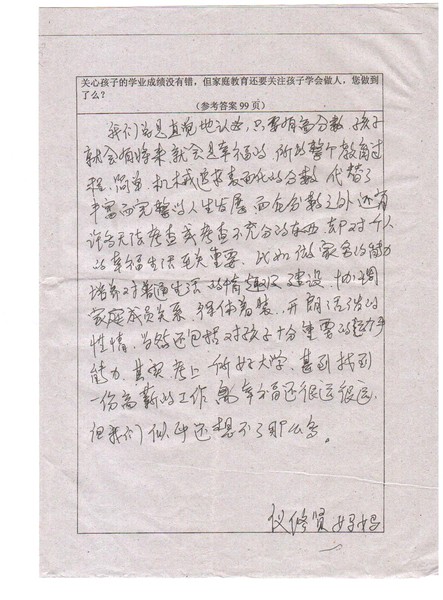 关心孩子的学业成绩没有错，但家庭教育还要关注孩子学会做人，您做到
了么？
（参考答案99页）
我们总是直觉地认为，只要有高分数，孩子
就会有将来就会是幸福的，所以整个教育过
程，简单、机械追求表面化的分数，代替了
丰富而完整的人生发展，而在分数之外还有
许多无法考查或考查不充分的东西，却对个人
的幸福生活至关重要，比如做家务的能力
培养对普通生活的情趣及建设、协调
家庭成员关系，得体着装、开朗活泼的
性情，当然还包括对孩子十分重要的
能力，其实考上一所好大学，甚至找到
一份高薪的工作离幸福还很远很远，
但我们似乎还想不了那么多。
修贤妈妈